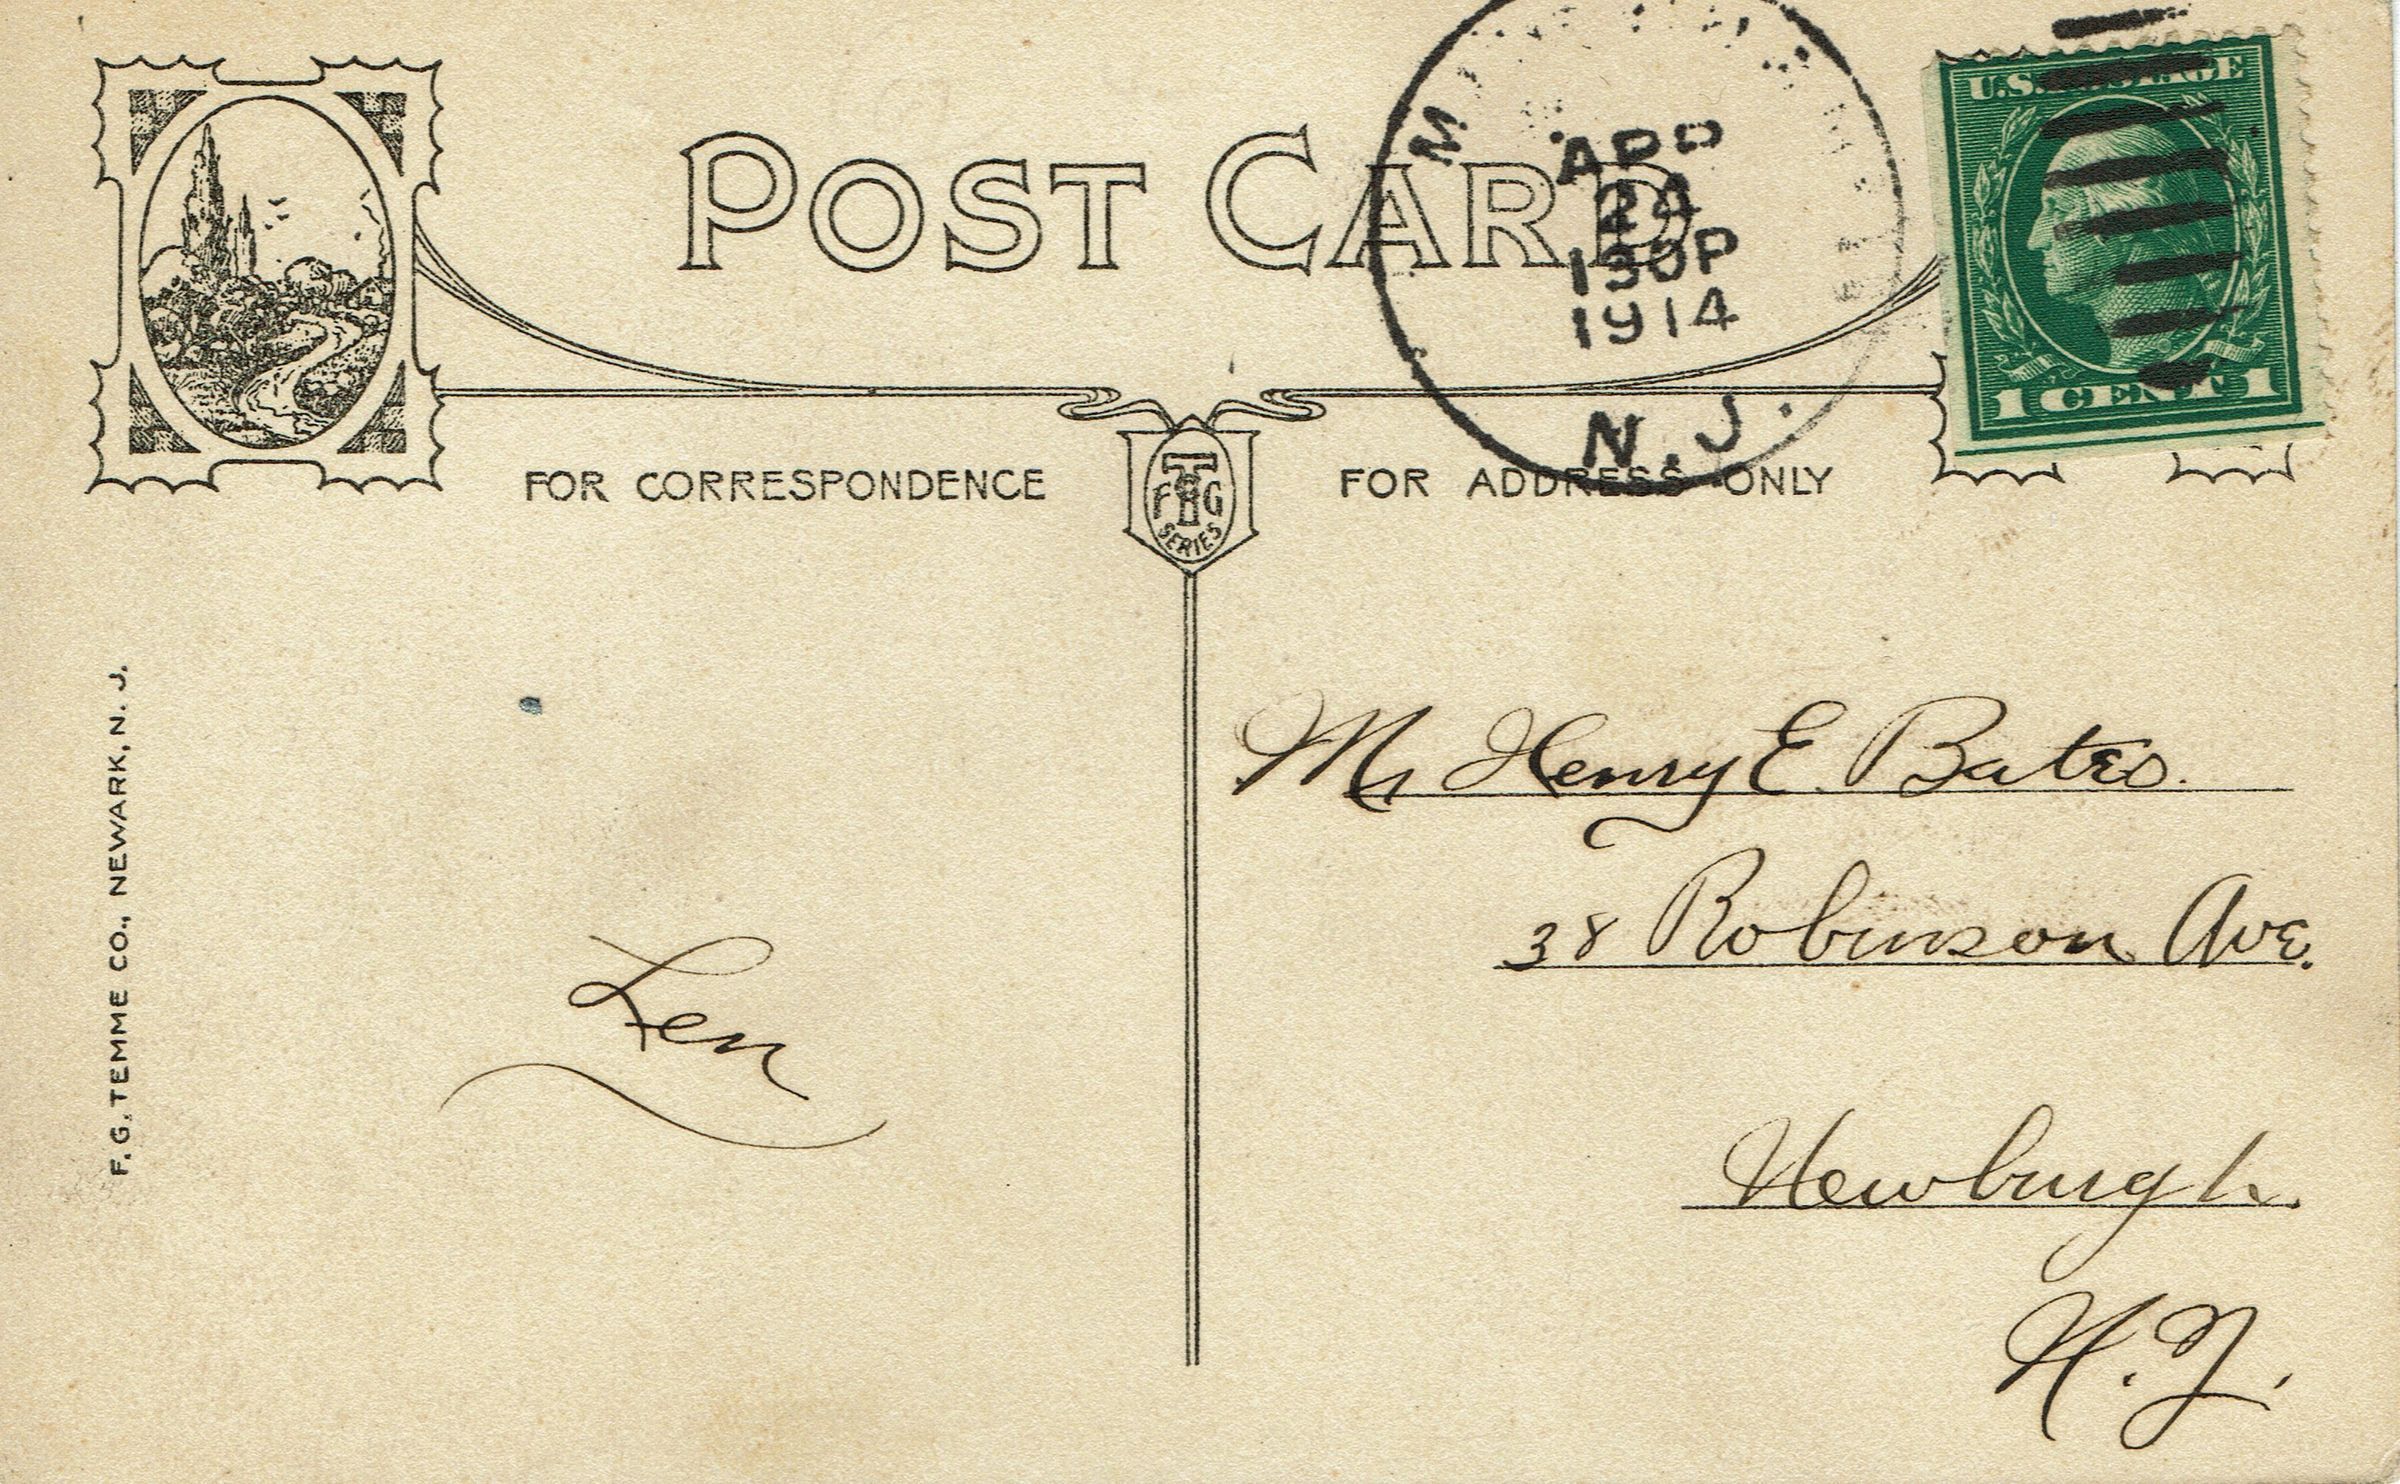 POST CARD
APR
24
130P
1914
N.J.
U.S. POSTAGE
1 CENT 1
FOR CORRESPONDENCE
FOR ADDRESS ONLY
FGT Co
SERIES
F. G. TEMME CO., NEWARK, N. J.
Len
Mr Henry E. Bates.
38 Robinson Ave.
Newburgh.
N.Y.